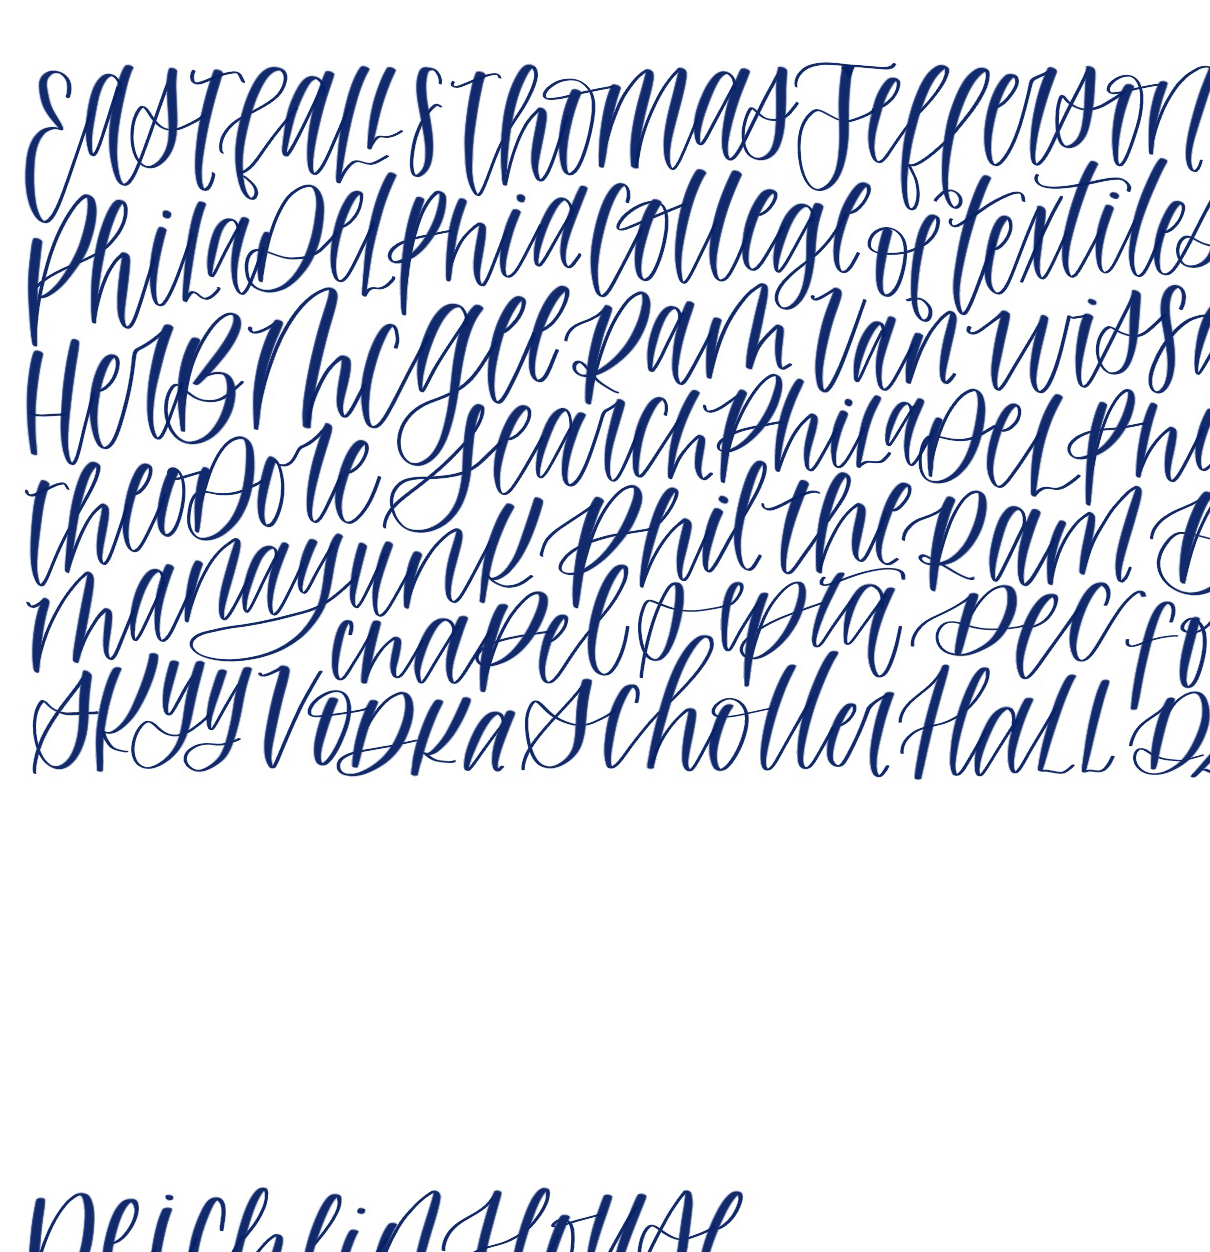 East Falls Thomas Jefferson
Philadelphia College of Textiles
Herb McGee Ram Van Wissa
Theodore Search Philadelphi
Manayunk Phil the Ram
Chapel Septa Dec
Skyy Vodka Scholler Hall
Reichlin House